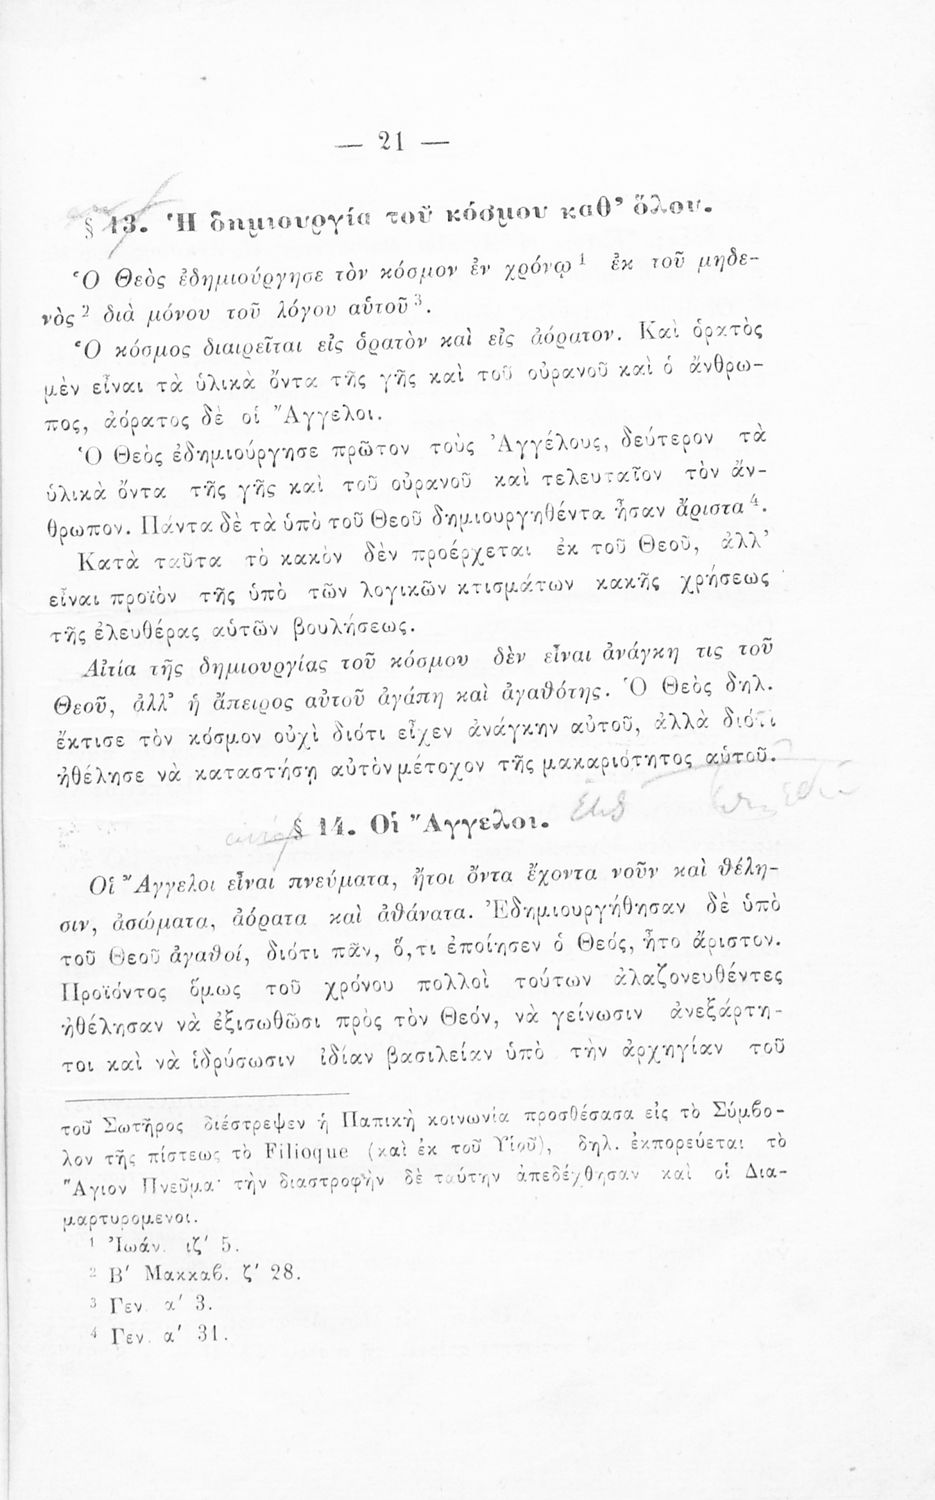 — 21 —
§ 13. Ἡ δημιουργία τοῦ κόσμου καθ’ ὅλου.
Ὁ Θεὸς ἐδημιούργησε τὸν κόσμον ἐν χρόνῳ ¹ ἐκ τοῦ μηδε-
νὸς ² διὰ μόνου τοῦ λόγου αὑτοῦ ³.
Ὁ κόσμος διαιρεῖται εἰς ὁρατὸν καὶ εἰς ἀόρατον. Καὶ ὁρατὸς
μὲν εἶναι τὰ ὑλικὰ ὄντα τῆς γῆς καὶ τοῦ οὐρανοῦ καὶ ὁ ἄνθρω-
πος, ἀόρατος δὲ οἱ Ἄγγελοι.
Ὁ Θεὸς ἐδημιούργησε πρῶτον τοὺς Ἀγγέλους, δεύτερον τὰ
ὑλικὰ ὄντα τῆς γῆς καὶ τοῦ οὐρανοῦ καὶ τελευταῖον τὸν ἄν-
θρωπον. Πάντα δὲ τὰ ὑπὸ τοῦ Θεοῦ δημιουργηθέντα ἦσαν ἄριστα ⁴.
Κατὰ ταῦτα τὸ κακὸν δὲν προέρχεται ἐκ τοῦ Θεοῦ, ἀλλ’
εἶναι προϊὸν τῆς ὑπὸ τῶν λογικῶν κτισμάτων κακῆς χρήσεως
τῆς ἐλευθέρας αὑτῶν βουλήσεως.
Αἰτία τῆς δημιουργίας τοῦ κόσμου δὲν εἶναι ἀνάγκη τις τοῦ
Θεοῦ, ἀλλ’ ἡ ἄπειρος αὐτοῦ ἀγάπη καὶ ἀγαθότης. Ὁ Θεὸς δηλ.
ἔκτισε τὸν κόσμον οὐχὶ διότι εἶχεν ἀνάγκην αὐτοῦ, ἀλλὰ διότι
ἠθέλησε νὰ καταστήσῃ αὐτὸν μέτοχον τῆς μακαριότητος αὑτοῦ.
§ 14. Οἱ Ἄγγελοι.
Οἱ Ἄγγελοι εἶναι πνεύματα, ἤτοι ὄντα ἔχοντα νοῦν καὶ θέλη-
σιν, ἀσώματα, ἀόρατα καὶ ἀθάνατα. Ἐδημιουργήθησαν δὲ ὑπὸ
τοῦ Θεοῦ ἀγαθοί, διότι πᾶν, ὅ,τι ἐποίησεν ὁ Θεός, ἦτο ἄριστον.
Προϊόντος ὅμως τοῦ χρόνου πολλοὶ τούτων ἀλαζονευθέντες
ἠθέλησαν νὰ ἐξισωθῶσι πρὸς τὸν Θεόν, νὰ γείνωσιν ἀνεξάρτη-
τοι καὶ νὰ ἱδρύσωσιν ἰδίαν βασιλείαν ὑπὸ τὴν ἀρχηγίαν τοῦ
τοῦ Σωτῆρος διέστρεψεν ἡ Παπικὴ κοινωνία προσθέσασα εἰς τὸ Σύμβο-
λον τῆς πίστεως τὸ Filioque (καὶ ἐκ τοῦ Υἱοῦ), δηλ. ἐκπορεύεται τὸ
Ἅγιον Πνεῦμα· τὴν διαστροφὴν δὲ ταύτην ἀπεδέχθησαν καὶ οἱ Δια-
μαρτυρομενοι.
¹ Ἰωάν. ιζ′ 5.
² Β′ Μακκαβ. ζ′ 28.
³ Γεν. α′ 3.
⁴ Γεν. α′ 31.